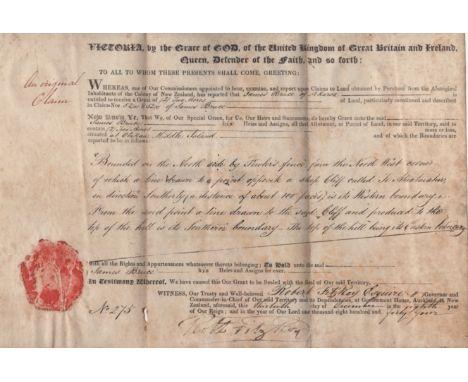 VICTORIA, by the Grace of GOD, of the United Kingdom of Great Britain and Ireland,
Queen, Defender of the Faith, and so forth:
TO ALL TO WHOM THESE PRESENTS SHALL COME, GREETING:
An original
Claim
WHEREAS, one of Our Commissioners appointed to hear, examine, and report upon Claims to Land obtained by Purchase from the Aboriginal
Inhabitants of the Colony of New Zealand, has reported that James Bruce of Akaroa is
entitled to receive a Grant of (2) Two Acres of Land, particularly mentioned and described
in Claim No. of James Bruce
Now Know Ye, That We, of Our Special Grace, for Us, Our Heirs and Successors, do hereby Grant unto the said
James Bruce his Heirs and Assigns, all that Allotment, or Parcel of Land, in our said Territory, said to
contain (2) Two Acres more or less,
situated at Middle Island and of which the Boundaries
are reported to be as follows:
Bounded on the North side by fence from the North West corner
of which a line drawn to a point opposite a steep Cliff called
in direction Southerly, a distance of about 100 paces, is its Western boundary.
From the said point a line drawn to the said Cliff and produced to the
top of the hill is its Southern boundary. The top of the hill being its Eastern boundary
with all the Rights and Appurtenances whatsoever thereto belonging; To Hold unto the said
James Bruce his Heirs and Assigns for ever.
In Testimony Whereof, We have caused this Our Grant to be Sealed with the Seal of Our said Territory.
WITNESS, Our Trusty and Well-beloved Robert FitzRoy Esquire Governor and
Commander-in-Chief of Our said Territory and its Dependencies, at Government House, Auckland, in New
Zealand, aforesaid, this day of December in the eighth year
of Our Reign; and in the year of Our Lord one thousand eight hundred and forty four
No. 275
FitzRoy